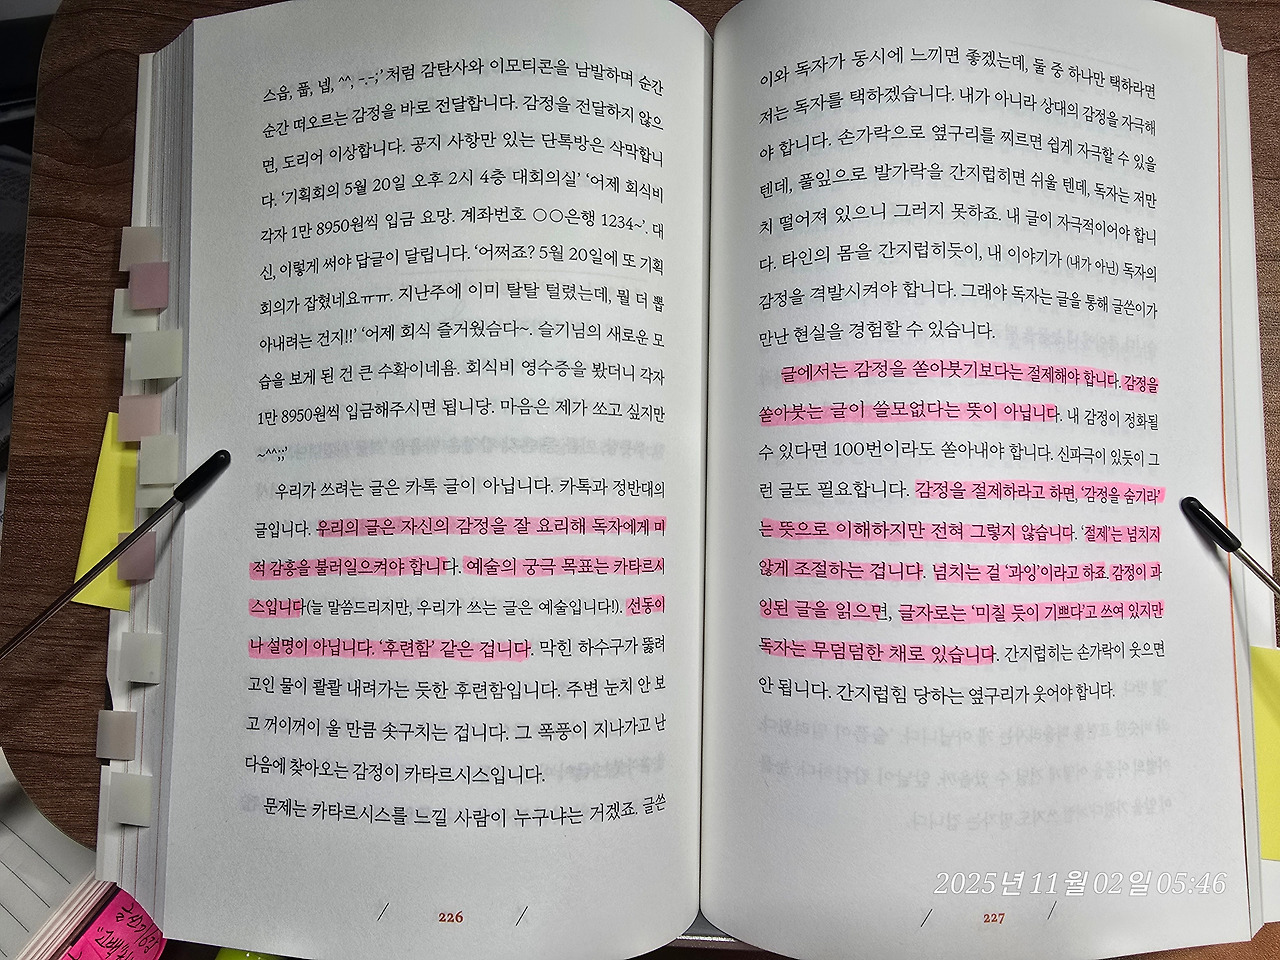 스읍, 풉, 넵, ^^, -.-;’처럼 감탄사와 이모티콘을 남발하며 순간
순간 떠오르는 감정을 바로 전달합니다. 감정을 전달하지 않으
면, 도리어 이상합니다. 공지 사항만 있는 단톡방은 삭막합니
다. ‘기획회의 5월 20일 오후 2시 4층 대회의실’ ‘어제 회식비
각자 1만 8950원씩 입금 요망. 계좌번호 ○○은행 1234~’. 대
신, 이렇게 써야 답글이 달립니다. ‘어쩌죠? 5월 20일에 또 기획
회의가 잡혔네요ㅠㅠ. 지난주에 이미 탈탈 털렸는데, 뭘 더 뽑
아내려는 건지!!’ ‘어제 회식 즐거웠슴다~. 슬기님의 새로운 모
습을 보게 된 건 큰 수확이네욤. 회식비 영수증을 봤더니 각자
1만 8950원씩 입금해주시면 됩니당. 마음은 제가 쏘고 싶지만
~^^;;’
우리가 쓰려는 글은 카톡 글이 아닙니다. 카톡과 정반대의
글입니다. 우리의 글은 자신의 감정을 잘 요리해 독자에게 미
적 감흥을 불러일으켜야 합니다. 예술의 궁극 목표는 카타르시
스입니다(늘 말씀드리지만, 우리가 쓰는 글은 예술입니다!). 선동이
나 설명이 아닙니다. ‘후련함’ 같은 겁니다. 막힌 하수구가 뚫려
고인 물이 콸콸 내려가는 듯한 후련함입니다. 주변 눈치 안 보
고 꺼이꺼이 울 만큼 솟구치는 겁니다. 그 폭풍이 지나가고 난
다음에 찾아오는 감정이 카타르시스입니다.
문제는 카타르시스를 느낄 사람이 누구냐는 거겠죠. 글쓴
226
이와 독자가 동시에 느끼면 좋겠는데, 둘 중 하나만 택하라면
저는 독자를 택하겠습니다. 내가 아니라 상대의 감정을 자극해
야 합니다. 손가락으로 옆구리를 찌르면 쉽게 자극할 수 있을
텐데, 풀잎으로 발가락을 간지럽히면 쉬울 텐데, 독자는 저만
치 떨어져 있으니 그러지 못하죠. 내 글이 자극적이어야 합니
다. 타인의 몸을 간지럽히듯이, 내 이야기가 (내가 아닌) 독자의
감정을 격발시켜야 합니다. 그래야 독자는 글을 통해 글쓴이가
만난 현실을 경험할 수 있습니다.
글에서는 감정을 쏟아붓기보다는 절제해야 합니다. 감정을
쏟아붓는 글이 쓸모없다는 뜻이 아닙니다. 내 감정이 정화될
수 있다면 100번이라도 쏟아내야 합니다. 신파극이 있듯이 그
런 글도 필요합니다. 감정을 절제하라고 하면, ‘감정을 숨기라’
는 뜻으로 이해하지만 전혀 그렇지 않습니다. ‘절제’는 넘치지
않게 조절하는 겁니다. 넘치는 걸 ‘과잉’이라고 하죠. 감정이 과
잉된 글을 읽으면, 글자로는 ‘미칠 듯이 기쁘다’고 쓰여 있지만
독자는 무덤덤한 채로 있습니다. 간지럽히는 손가락이 웃으면
안 됩니다. 간지럽힘 당하는 옆구리가 웃어야 합니다.
227
2025년 11월 02일 05:46